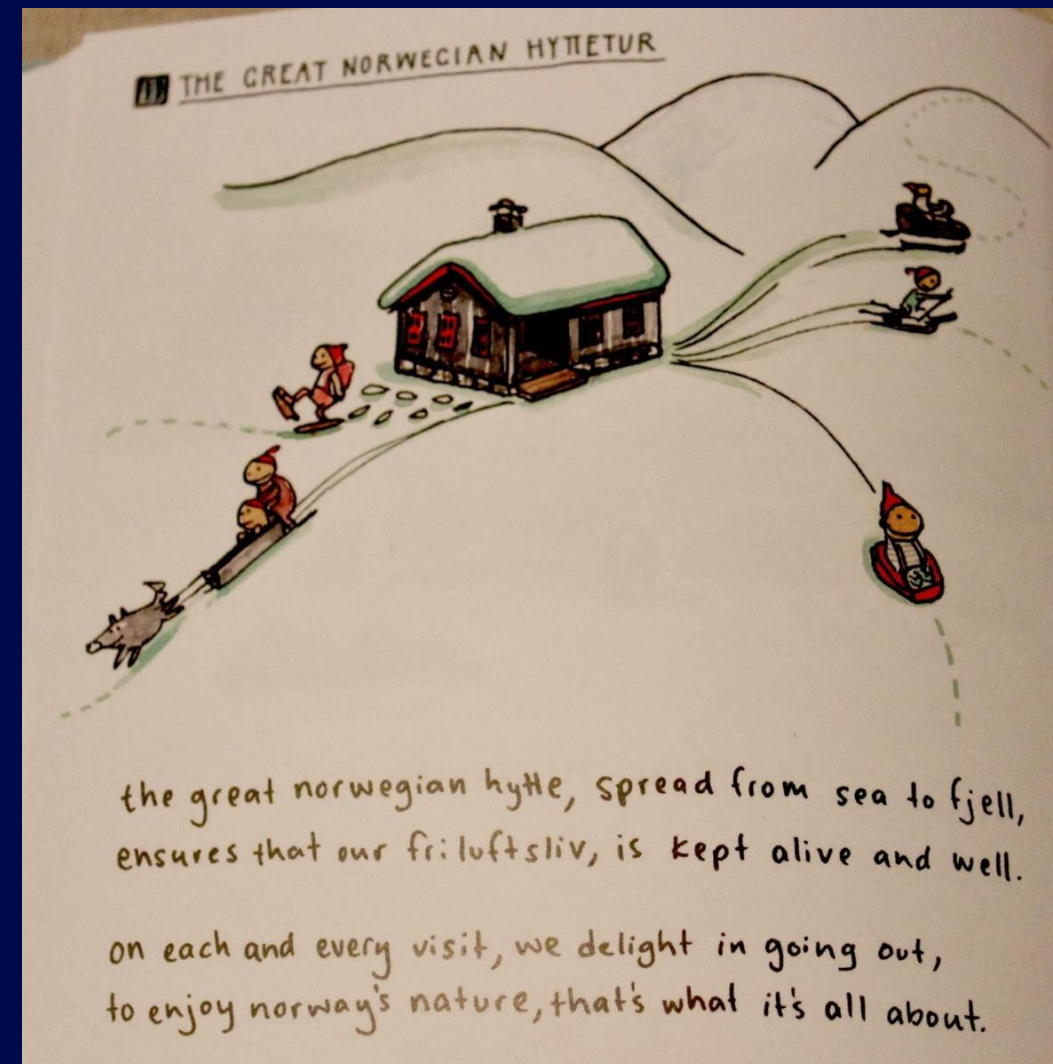 THE GREAT NORWEGIAN HYTTETUR
the great norwegian hytte, spread from sea to fjell,
ensures that our friluftsliv, is kept alive and well.
on each and every visit, we delight in going out,
to enjoy norway's nature, that's what it's all about.